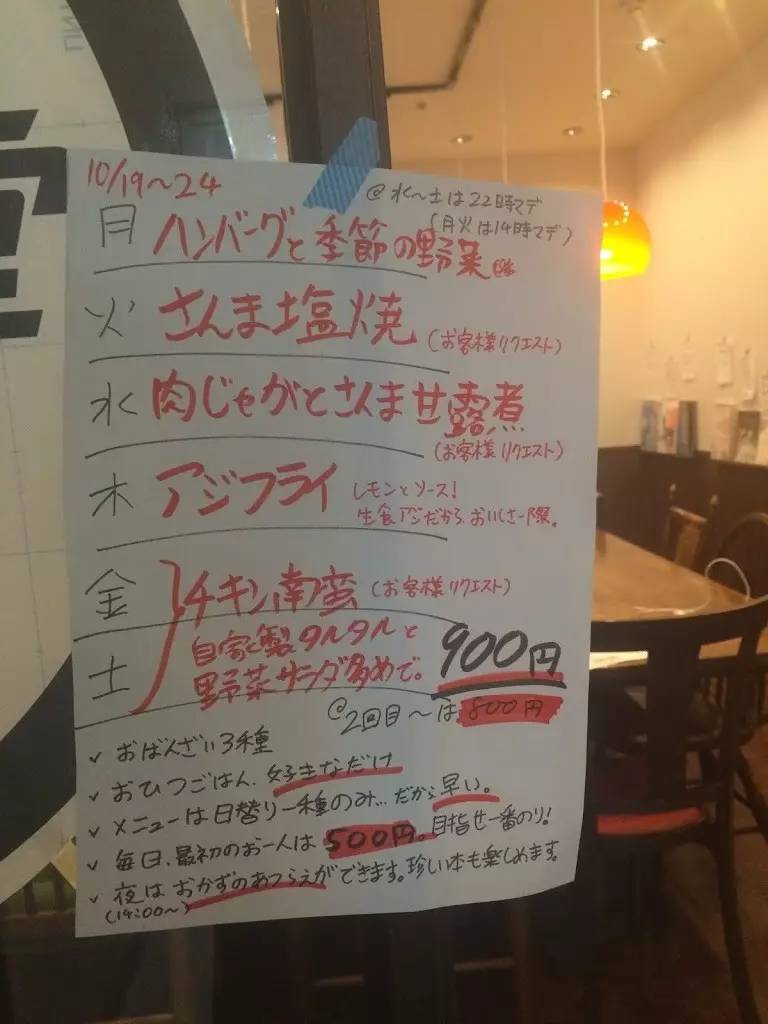 10/19〜24
@水〜土は22時マデ
(月火は14時マデ)
月 ハンバーグと季節の野菜
火 さんま塩焼 (お客様リクエスト)
水 肉じゃがとさんま甘露煮
(お客様リクエスト)
木 アジフライ レモンとソース!
生食アジだから、おいしさ一際。
金 チキン南蛮 (お客様リクエスト)
土 自家製タルタルと
野菜サラダ多めで。
900円
@2回目〜は 800円
✓ おばんざい3種
✓ おひつごはん、好きなだけ
✓ メニューは日替り一種のみ…だから早い。
✓ 毎日、最初のお一人は500円。目指せ一番のり!
✓ 夜はおかずのあつらえができます。珍い本も楽しめます。
(14:00〜)